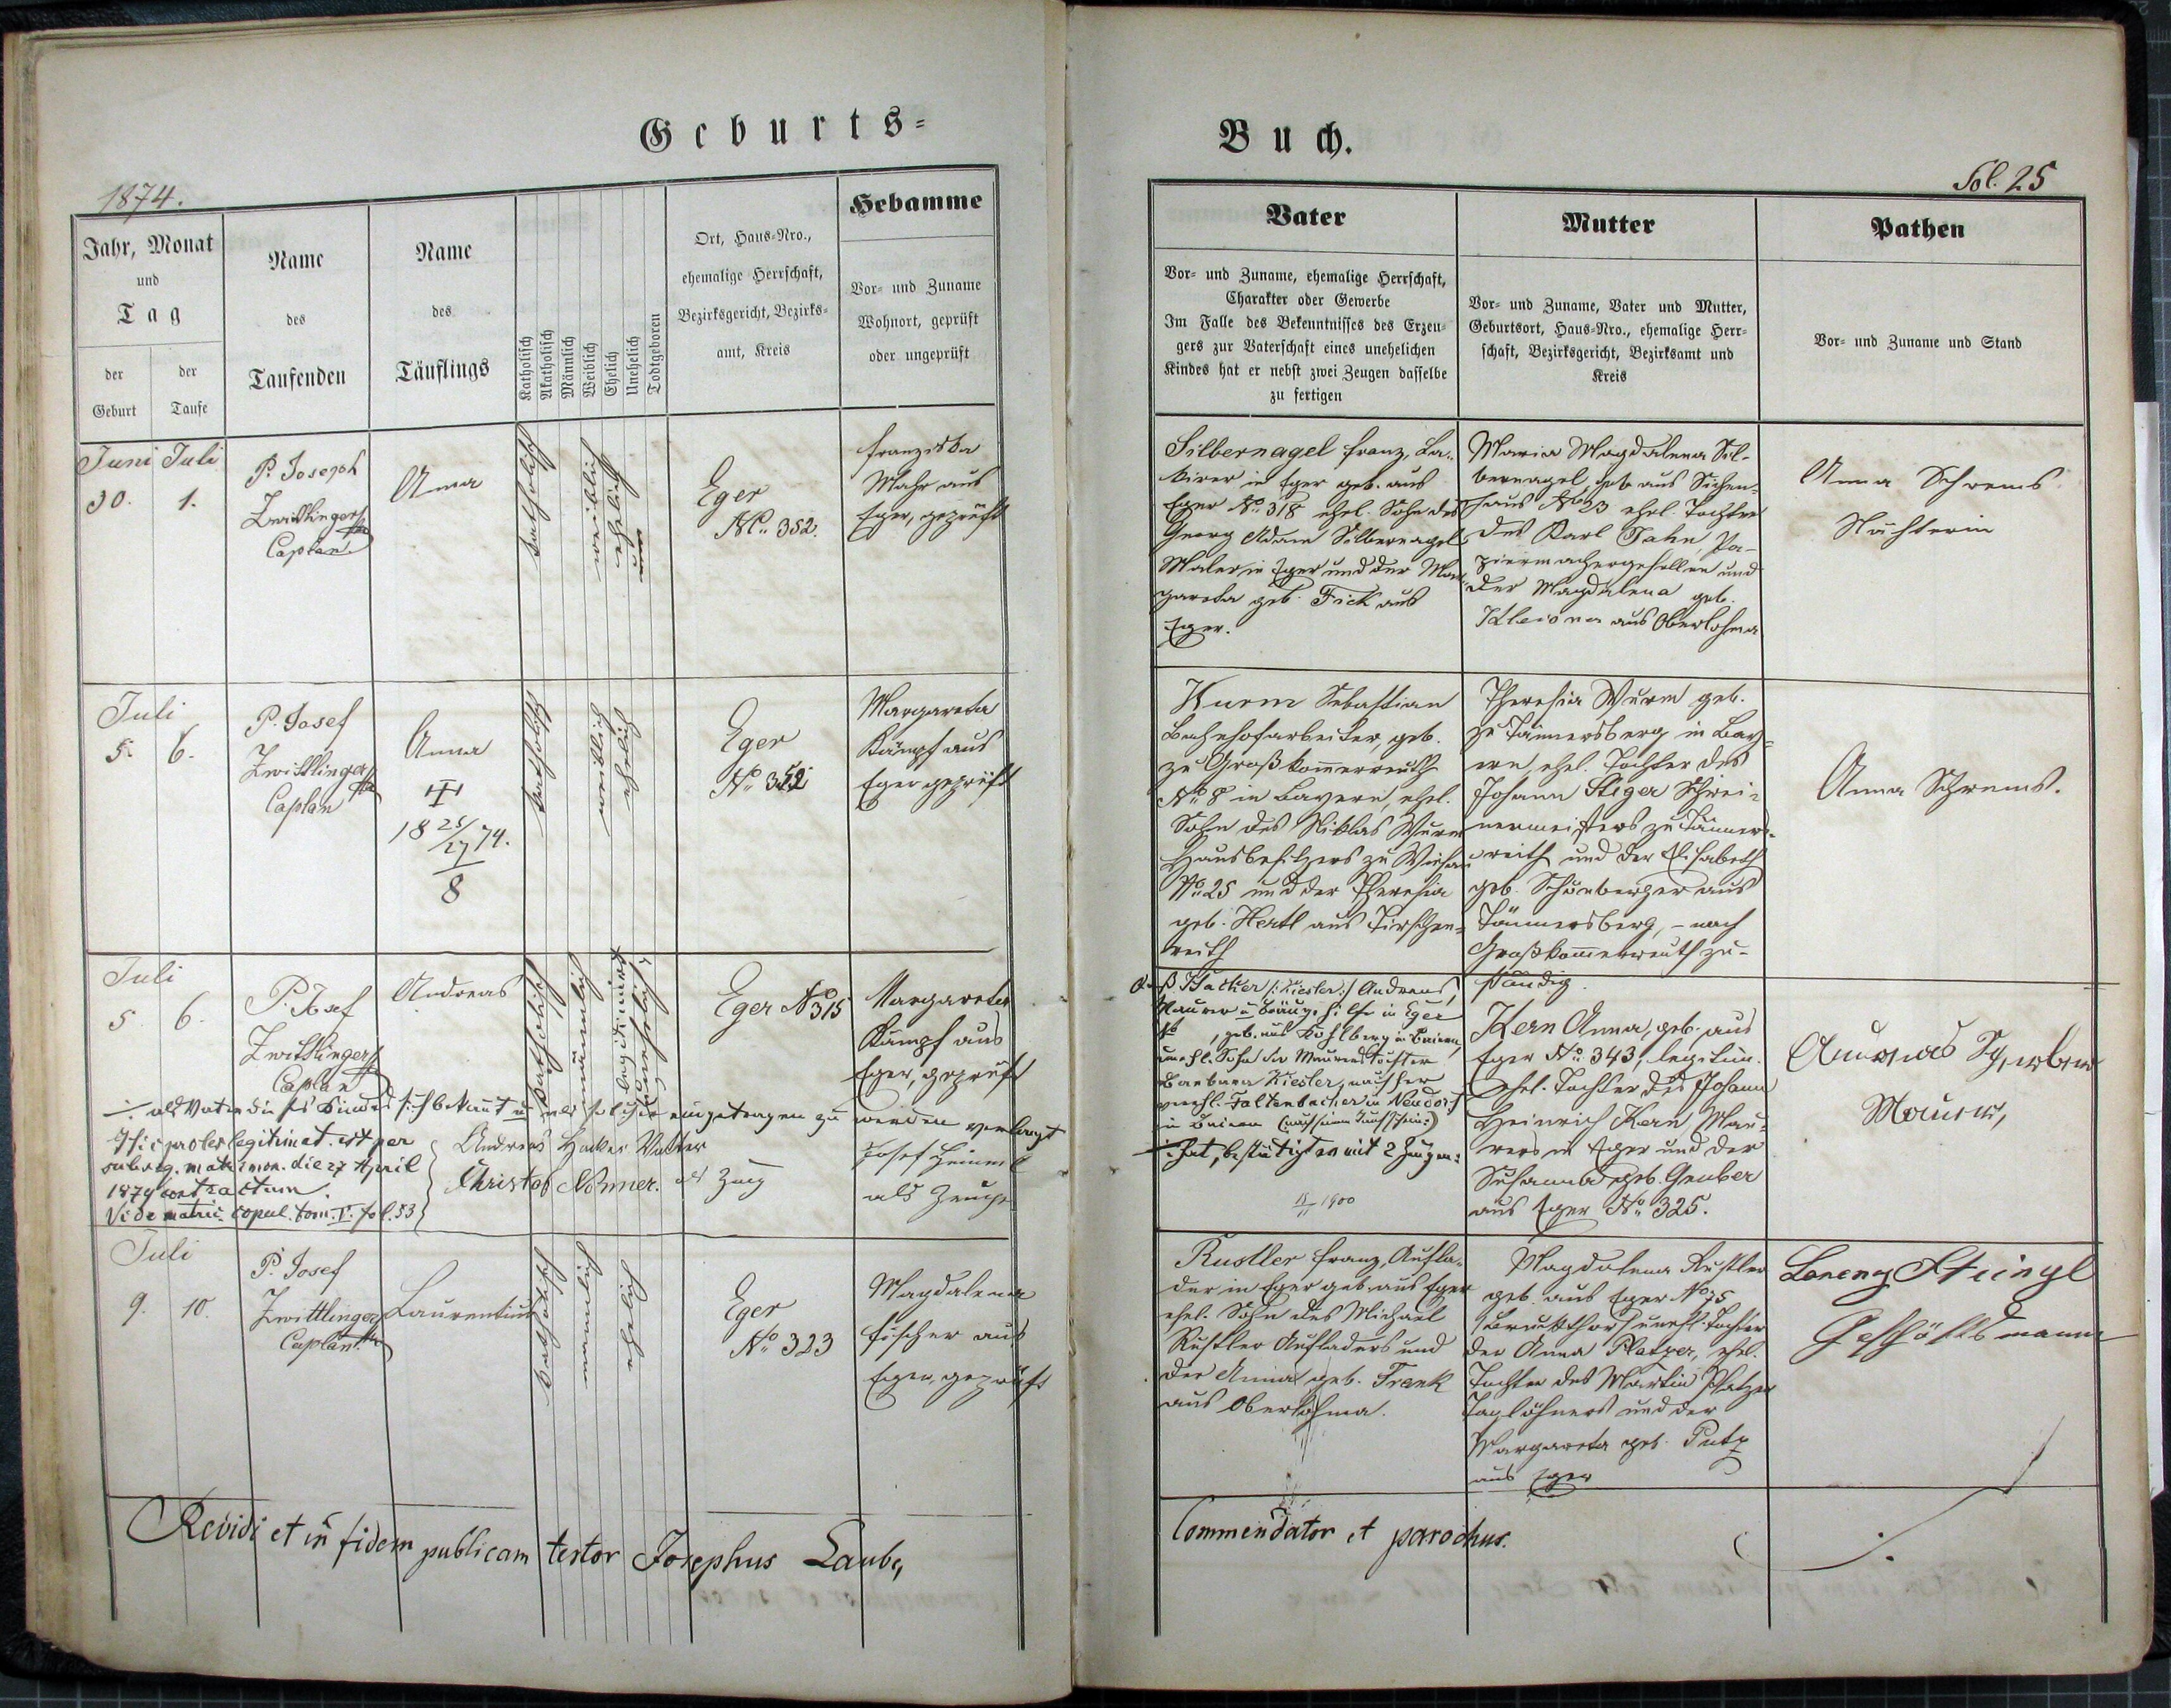 Geburts-
Buch.
1874.
Fol. 25
Jahr, Monat
und
Tag
der
Geburt
der
Taufe
Name
des
Taufenden
Name
des
Täuflings
Katholisch
Akatholisch
Männlich
Weiblich
Ehelich
Unehelich
Todtgeboren
Ort, Haus-Nro.,
ehemalige Herrschaft,
Bezirksgericht, Bezirks-
amt, Kreis
Hebamme
Vor- und Zuname
Wohnort, geprüft
oder ungeprüft
Vater
Vor- und Zuname, ehemalige Herrschaft,
Charakter oder Gewerbe
Im Falle des Bekenntnisses des Erzeu-
gers zur Vaterschaft eines unehelichen
Kindes hat er nebst zwei Zeugen dasselbe
zu fertigen
Mutter
Vor- und Zuname, Vater und Mutter,
Geburtsort, Haus-Nro., ehemalige Herr-
schaft, Bezirksgericht, Bezirksamt und
Kreis
Pathen
Vor- und Zuname und Stand
Juni Juli
30. 1.
P. Joseph
Zwittlinger
Caplan
Anna
katholisch
weiblich
ehelich
Eger
No. 352.
Franziska
Mahr aus
Eger, geprüft
Silbernagel Franz, La-
kirer in Eger geb. aus
Eger No. 318 ehel. Sohn des
Georg Adam Silbernagel
Maler in Eger und der Mar-
gareta geb. Fick aus
Eger.
Maria Magdalena Sil-
bernagel, geb. aus Sichen-
haus No 23 ehel. Tochter
des Karl Jahn, Pa-
piermachergesellen und
der Magdalena geb.
aus Oberlohma
Anna Schrems
Nähterin
Juli
5. 6.
P. Josef
Zwittlinger
Caplan
Anna
18 25/27 74.
8
katholisch
weiblich
ehelich
Eger
No. 352
Margareta
Kämpf aus
Eger geprüft
Wurm Sebastian
Bahnhofarbeiter, geb.
zu Großkonnersreuth
No. 8 in Bayern, ehel.
Sohn des Niklas Wurm
Hausbesitzers zu
No. 25 und der Theresia
geb. Hertl aus Tirschen-
reuth
Theresia Wurm geb.
zu Tännersberg in Bay-
ern, ehel. Tochter des
Johann Steger Schrei-
nermeisters zu Tänners-
reith und der Elisabeth
geb. Schönberger aus
Tännersberg, - nach
Großkonnersreuth zu-
ständig.
Anna Schrems.
Juli
5 6.
P. Josef
Zwittlinger
Caplan
Andreas
katholisch
männlich
legitimirt
unehelich
Eger No 315
Margareta
Kämpf aus
Eger, geprüft
Hacker /: Kiesler :/ Andreas,
Maurer in Eger
geb. aus Kohlberg in Baiern,
unehl. Sohn der Maurerstochter
Barbara Kiesler, nachher
verehl. Faltenbacher in Neudorf
in Baiern (nach seinem Taufschein:)
hat, bestätigt er mit 2 Zeugen:
15/11 1900
Kern Anna, geb. aus
Eger No. 343, legitim.
ehel. Tochter des Johann
Heinrich Kern Mau-
rers in Eger und der
Susanna geb. Gruber
aus Eger No. 325.
Andreas
Maurer,
als Vater dieses Kindes sich bekannt u. als solcher eingetragen zu werden verlangt
Hic proles legitimat. est per
subseq. matrimon. die 27 April
1879 contractum.
Vide matric. copul. tom. V. fol. 53
Andreas Hacker Vater
Christof als Zeug
Josef
als Zeuge
Juli
9. 10.
P. Josef
Zwittlinger
Caplan
Laurentius
katholisch
männlich
ehelich
Eger
No 323
Magdalena
Fischer aus
Eger, geprüft
Rustler Franz, Aufla-
der in Eger geb. aus Eger
ehel. Sohn des Michael
Rustler Aufladers und
der Anna geb. Frank
aus Oberlohma.
Magdalena Rustler
geb. aus Eger No 15
Bruckthor unehl. Tochter
der Anna Platzer, ehel.
Tochter des Martin Platzer
Taglöhners und der
Margareta geb. Putz
aus Eger
Lorenz Steingl
Geschäftsmann
Revidi et in fidem publicam testor Josephus Laube,
Commendator et parochus.